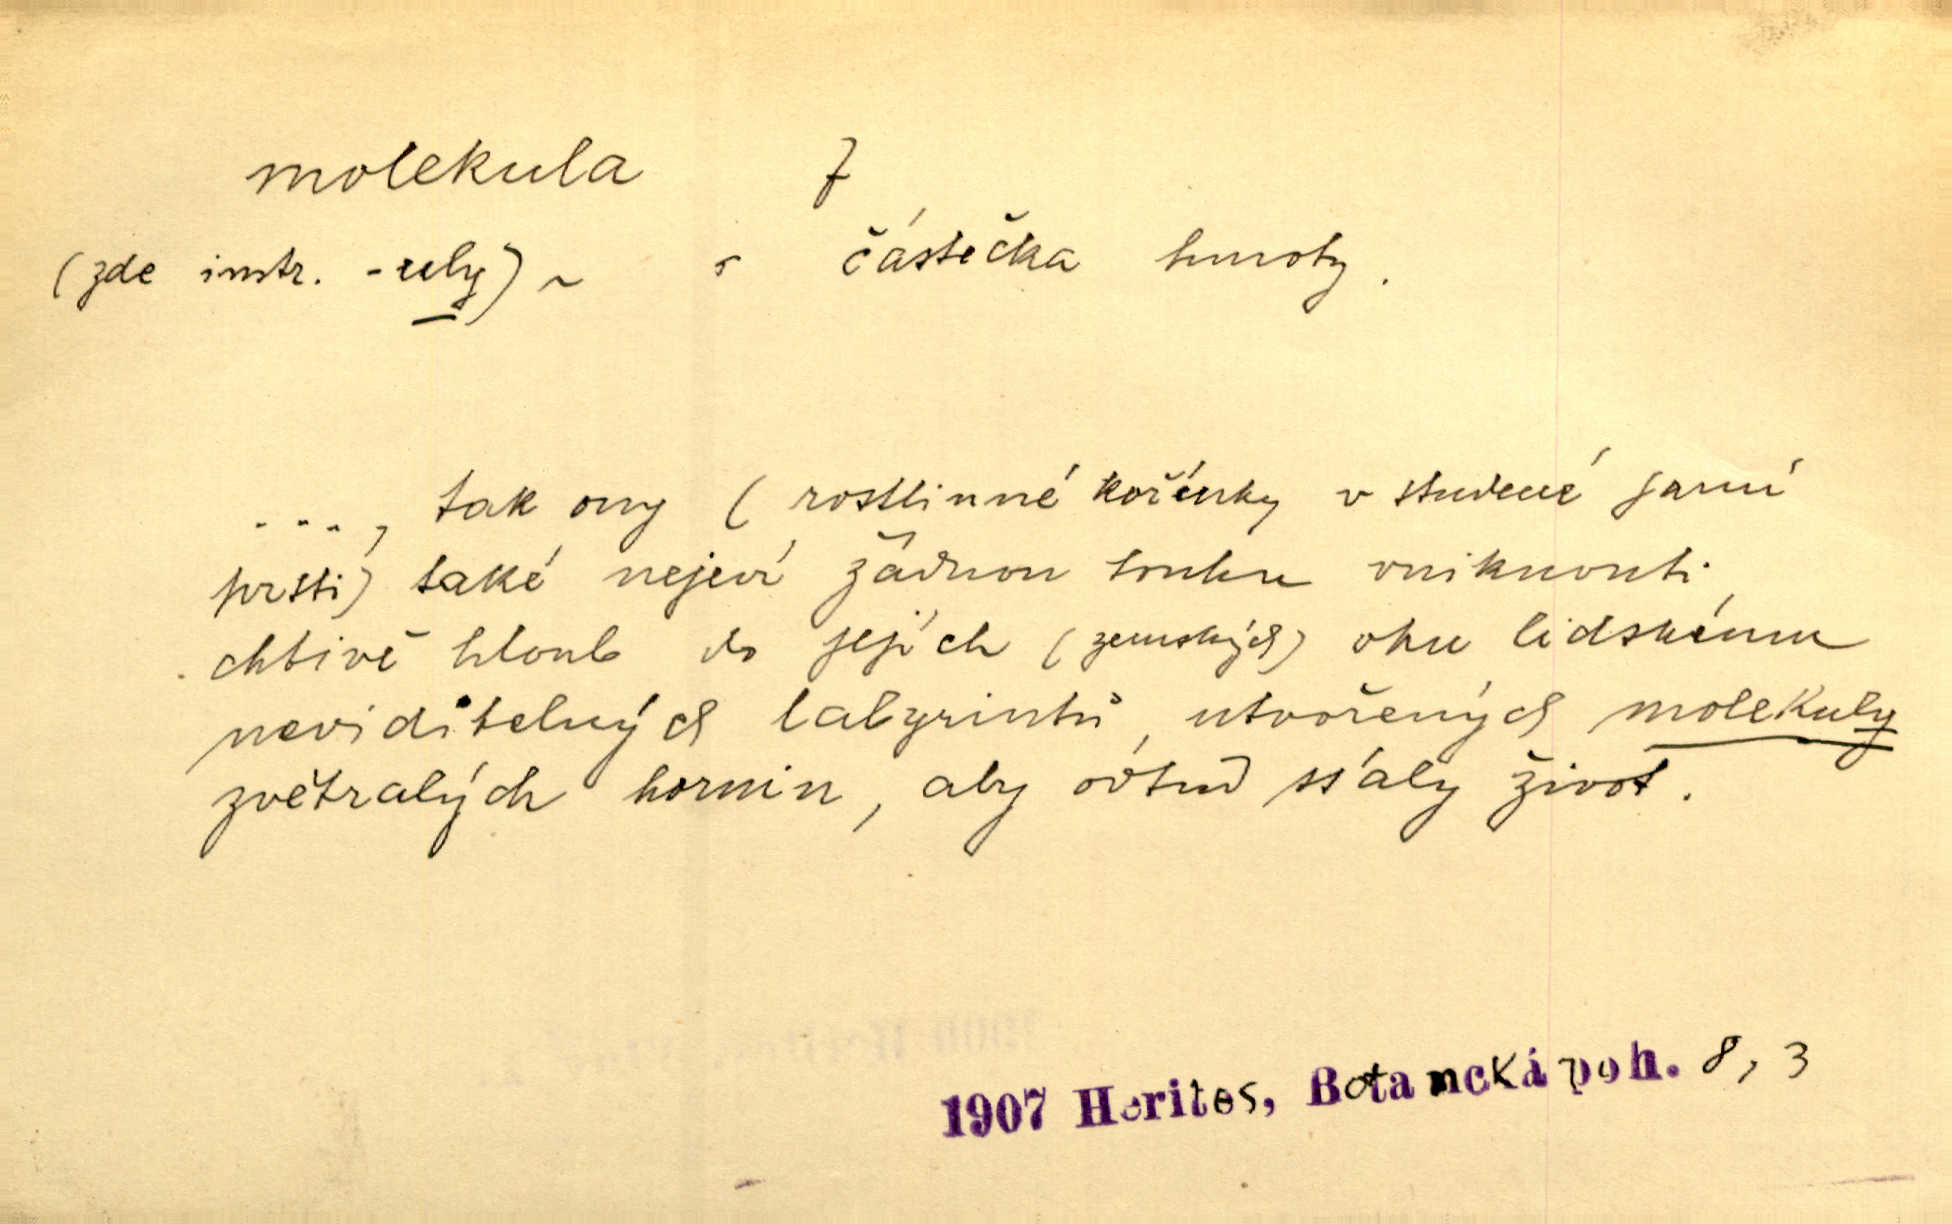 molekula f
(zde instr. -uly) ~ častečka hmoty.
..., tak ony (rostlinné kořénky v studené jarní
prsti) také nejeví žádnou touhu vniknouti
chtivě hloub do jejích (zemských) oku lidskému
neviditelných labyrintů, utvořených molekuly
zvětralých hornin, aby odtud ssály život.
1907 Herites, Botanická poh. 8, 3